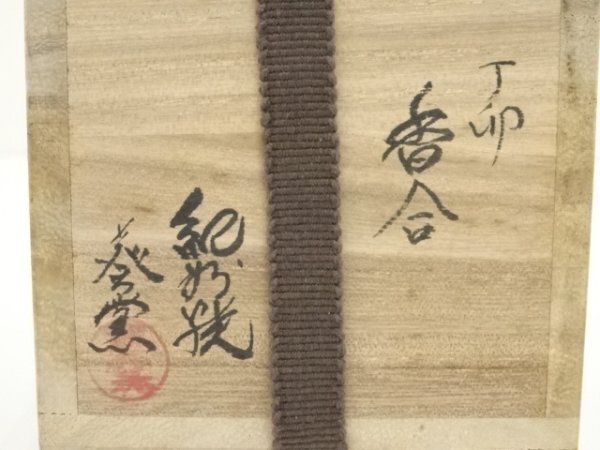 丁卯
香合
紀州焼
葵窯